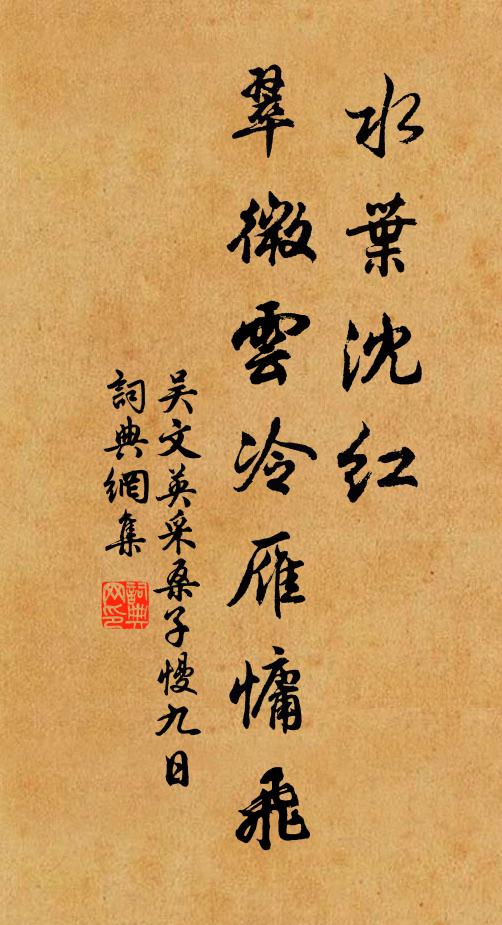 水葉沈紅
翠微雲冷雁慵飛
吴文英采桑子慢九日
詞典網集
詞典網印